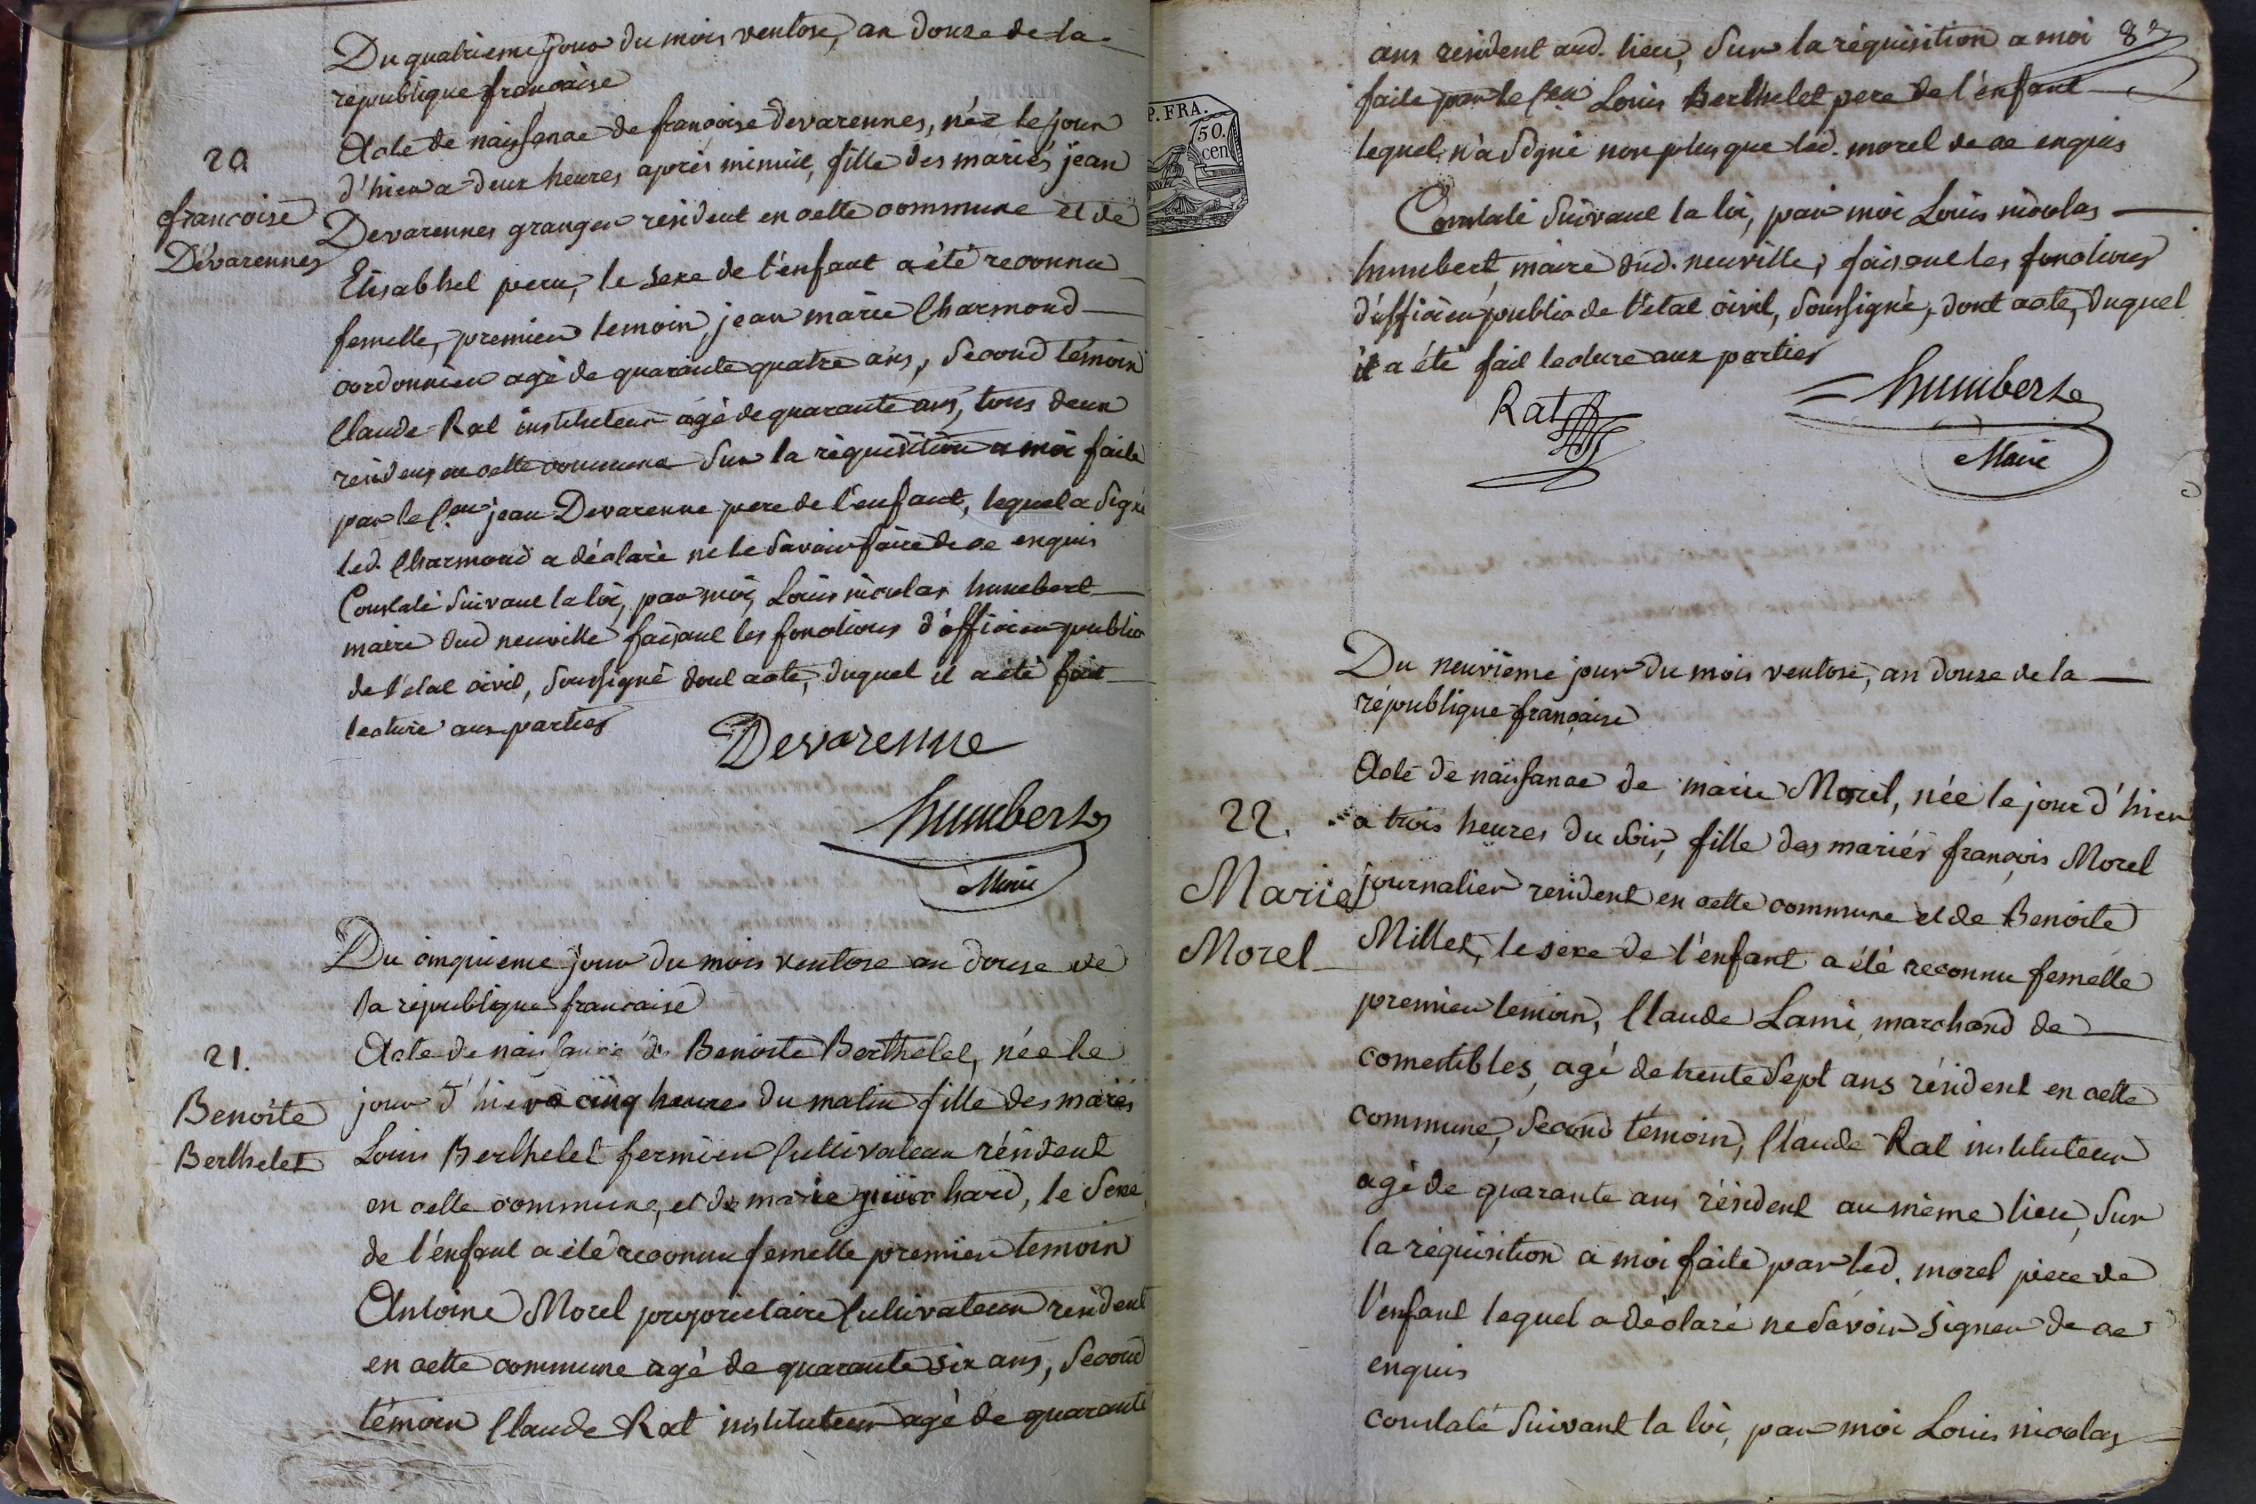 Du quatrieme jour du mois ventose, an douze de la
république francaise
20
Acte de naissance de françoise Devarennes, née le jour
d'hier a deux heures après minuit, fille des mariés jean
francoise
Devarennes granger résident en cette commune et de
Dévarennes
Elisabhet peru, le sexe de l'enfant a été reconnu
femelle, premier temoin, jean marie Charmond
cordonnier agé de quarante quatre ans, second témoin
Claude Rat instituteur agé de quarante ans, tous deux
residens en cette commune sur la réquisition a moi faite
par le Cen jean Devarenne pere de l'enfant, lequel a signé
led. Charmond a déclaré ne le savoir faire de ce enquis
Constaté suivant la loi, par moi, Louis nicolas humbert
maire dud neuville faisant les fonctions d'officier public
de l'etat civil, soussigné dont acte, duquel il a été fait
lecture aux parties
Devarenne
humbert
Maire
Du cinquieme jour du mois ventose an douze de
la république francaise
21.
Acte de naissance de Benoite Berthelet, née le
jour d'hier a cinq heures du matin fille des mariés
Benoite
Berthelet
Louis Berthelet fermier Cultivateur résident
en cette commune, et de marie guichard, le sexe
de l'enfant a été reconnu femelle premier temoin
Antoine Morel proprietaire Cultivateur resident
en cette commune agé de quarante six ans, second
témoin Claude Rat instituteur agé de quarante
82
ans résident aud. lieu, sur la réquisition a moi
faite par le Cen Louis Berthelet pere de l'enfant
lequel n'a signé non plus que led. morel de ce enquis
P. FRA.
50.
cen
Constaté suivant la loi, par moi Louis nicolas
humbert, maire dud. neuville, faisant les fonctions
d'officier public de l'état civil, soussigné, dont acte, duquel
il a été fait lecture aux parties
Rat
humbert
Maire
Du neuvième jour du mois ventose, an douze de la
république française
22.
Acte de naissance de marie Morel, née le jour d'hier
a trois heures du soir, fille des mariés françois Morel
Marie
journalier resident en cette commune et de Benoite
Morel
Millet, le sexe de l'enfant a été reconnu femelle
premier temoin, Claude Lami, marchand de
comestibles, agé de trente sept ans résident en cette
commune, second témoin, Claude Rat instituteur
agé de quarante ans résident au même lieu, sur
la réquisition a moi faite par led. morel piere de
l'enfant lequel a déclaré ne savoir signer de ce
enquis
constaté suivant la loi, par moi Louis nicolas